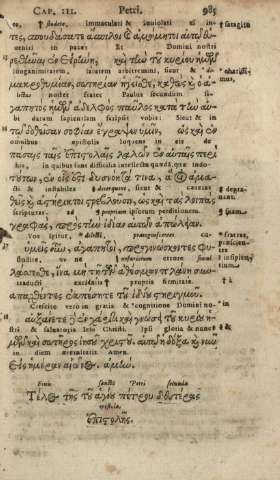 CAP. III. Petri. 985
te, immaculati & inuiolati ei in-
τες, σπουδάσατε ἄσπιλοι & ἀμώμητοι αὐτῷ
uentri in pace: Et Domini nostri
καὶ τὴν τοῦ κυρίου ἡμῶν
longanimitatem, salutem arbitremini, sicut & ca-
μακροθυμίαν, σωτηρίαν ἡγεῖσθε, καθὼς καὶ ὁ ἀ-
rissimus noster frater Paulus secundum si-
γαπητὸς ἡμῶν ἀδελφὸς παῦλος κατὰ τὴν αὐ-
bi datam sapientiam scripsit vobis: Sicut & in
τῷ δοθεῖσαν σοφίαν ἔγραψεν ὑμῖν, ὡς καὶ ἐν
omnibus epistolis loquens in eis de
πάσαις ταῖς ἐπιστολαῖς λαλῶν ἐν αὐταῖς περὶ
his, in quibus sunt difficilia intellectu quædā, quæ indo-
τούτων, ἐν οἷς ἐστὶ δυσνόητά τινα, ἃ οἱ ἀμα-
cti & instabiles deprauant, sicut & cæteras
καὶ ἀστήρικτοι στρεβλοῦσιν, ὡς καὶ τὰς λοιπὰς
scripturas, ad propriam ipsorum perditionem.
γραφὰς, πρὸς τὴν ἰδίαν αὐτῶν ἀπώλειαν.
Vos igitur,
ὑμεῖς οὖν, ἀγαπητοί, προγινώσκοντες φυ-
stodite, vt ne errore simul
λάσσεσθε, ἵνα μὴ τῇ τῶν ἀθέσμων πλάνῃ συν-
traducti excidatis propria firmitate.
ἀπαχθέντες ἐκπέσητε τοῦ ἰδίου στηριγμοῦ.
Crescite vero in gratia & cognitione Domini no-
αὐξάνετε δὲ ἐν χάριτι καὶ γνώσει τοῦ κυρίου ἡ-
stri & saluatoris Iesu Christi. Ipsi gloria & nunc &
μῶν καὶ σωτῆρος ἰησοῦ χριστοῦ. αὐτῷ ἡ δόξα καὶ νῦν
in diem æternitatis. Amen.
εἰς ἡμέραν αἰῶνος. ἀμήν.
Finis sancti Petri secundæ
Τέλος τῆς τοῦ ἁγίου πέτρου δευτέρας
epistolæ.
ἐπιστολῆς.